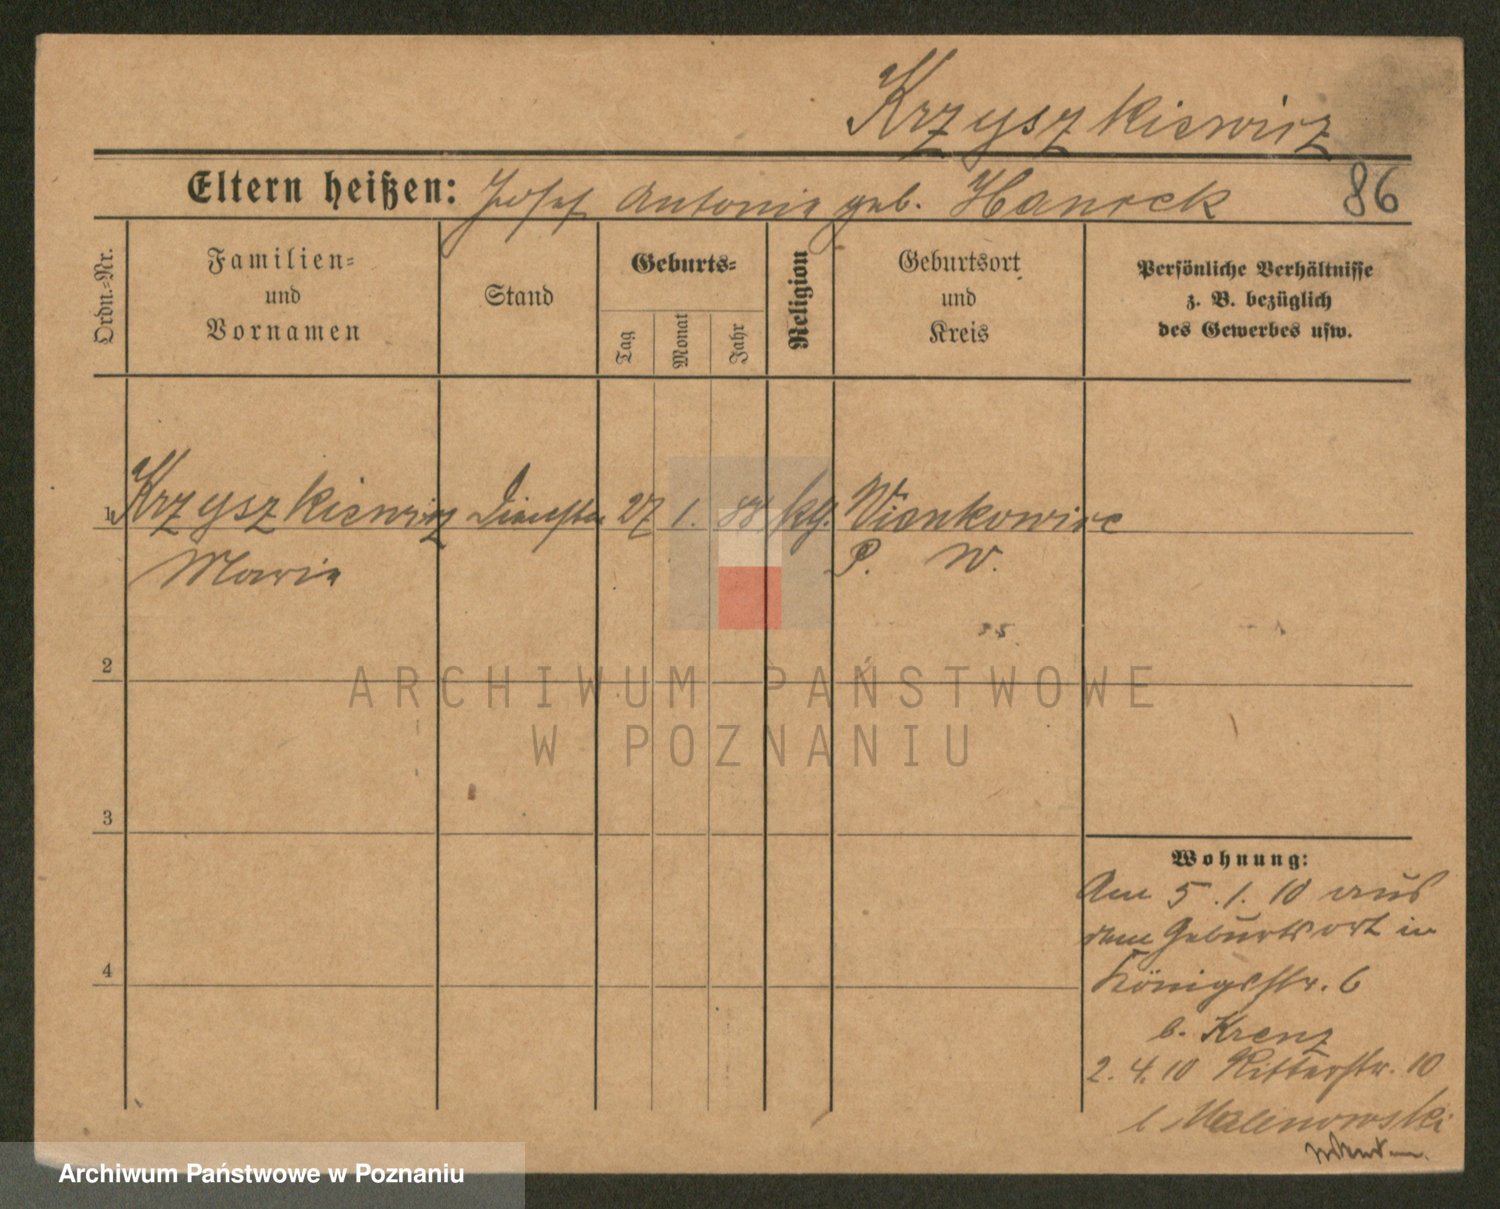 Krzyszkiewicz
Eltern heißen: Josef Antonie geb. Haneck
86
Ordn.=Nr.
Familien=
und
Vornamen
Stand
Geburts=
Tag
Monat
Jahr
Religion
Geburtsort
und
Kreis
Persönliche Verhältnisse
z. B. bezüglich
des Gewerbes usw.
1 Krzyszkiewicz 27 1. 88 kg. Wienkowice
Marie P. W.
2
ARCHIWUM PAŃSTWOWE
W POZNANIU
3
4
Wohnung:
Am 5.1.10 aus
dem Geburtsort in
Königsstr. 6
b. Krenz
2.4.10 Ritterstr. 10
b Malinowski
Archiwum Państwowe w Poznaniu